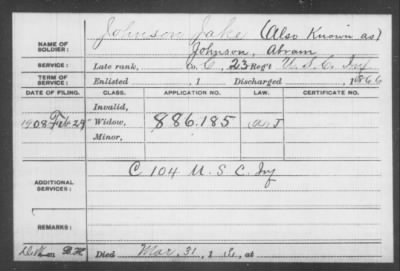 Johnson Jake (Also Known as)
NAME OF SOLDIER: Johnson, Abram
SERVICE: Late rank, Co. C, 23 Reg't U.S.C. Inf
TERM OF SERVICE: Enlisted , 1 Discharged , 1866
DATE OF FILING. CLASS. APPLICATION NO. LAW. CERTIFICATE NO.
Invalid,
1908 Feb 29 Widow, 886.185
Minor,
ADDITIONAL SERVICES: C 104 U.S.C. Inf
REMARKS:
Died Mar. 31, 1 , at